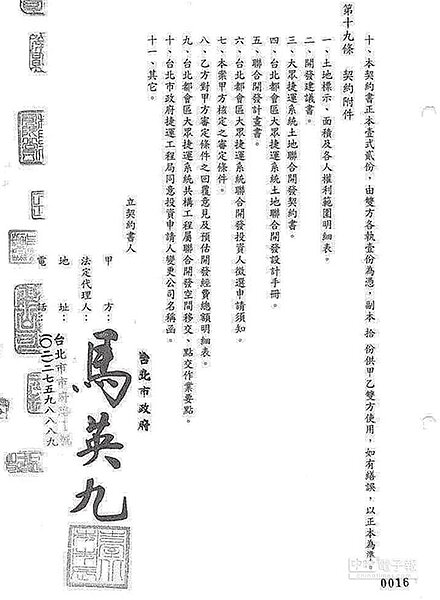 十、本契約書正本壹式貳份，由雙方各執壹份為憑，副本 拾 份供甲乙雙方使用，如有繕誤，以正本為準。
第十九條 契約附件
一、土地標示、面積及各人權利範圍明細表。
二、開發建議書。
三、大眾捷運系統土地聯合開發契約書。
四、台北都會區大眾捷運系統土地聯合開發設計手冊。
五、聯合開發計畫書。
六、台北都會區大眾捷運系統聯合開發投資人徵選申請須知。
七、本案甲方核定之審定條件。
八、乙方對甲方審定條件之回覆意見及預估開發經費總額明細表。
九、台北都會區大眾捷運系統共構工程屬聯合開發空間移交、點交作業要點。
十、台北市政府捷運工程局同意投資申請人變更公司名稱函。
十一、其它。
立契約書人
甲 方： 台北市政府
法定代理人： 馬英九
地 址： 台北市市府路一號
電 話： (〇二)二七五九八八八九
中時電子報
0016